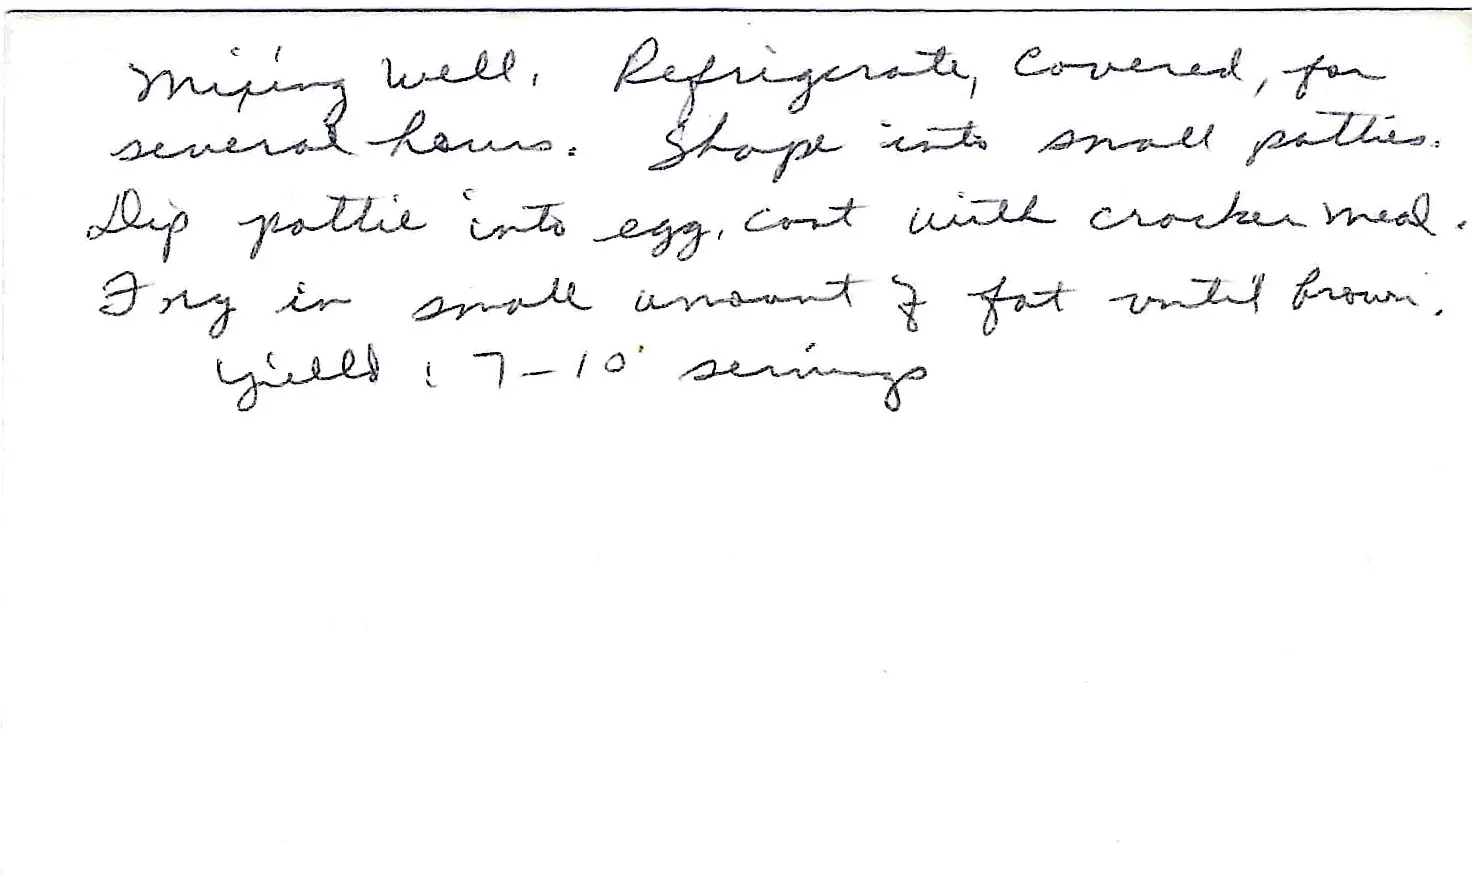 Mixing well. Refrigerate, covered, for
several hours. Shape into small patties.
Dip pattie into egg, coat with cracker meal.
Fry in small amount of fat until brown.
Yield: 7-10 servings